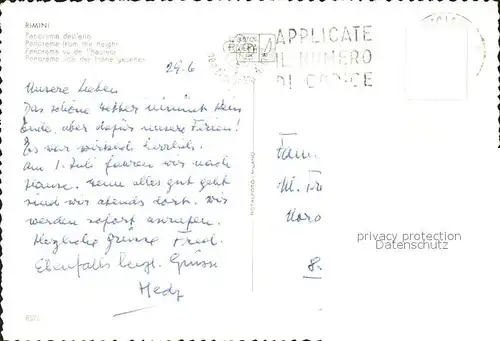 RIMINI
Panorama dall'alto
Panorama from the height
Panorama vu de l'hauteur
Panorama von der Höhe gesehen
APPLICATE
IL NUMERO
DI CODICE
29.6
Unsere Lieben
Das schöne Wetter nimmt kein
Ende, aber dafür unsere Ferien!
Es war wirklich herrlich.
Am 1. Juli fahren wir nach
Hause. Wenn alles gut geht
sind wir abends dort. Wir
werden sofort anrufen.
Herzliche Grüsse Fred.
Ebenfalls herzl. Grüsse
Hedy
Fam.
M. Fr
Horo
8
privacy protection
Datenschutz